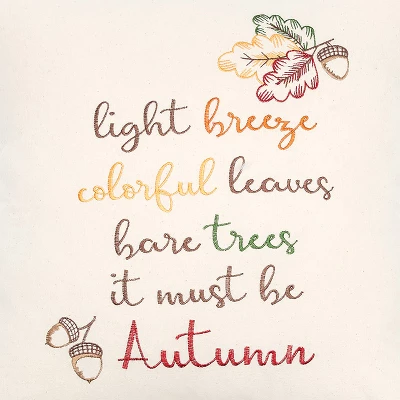 light breeze
colorful leaves
bare trees
it must be
Autumn